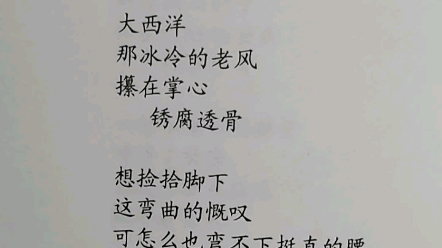 大西洋
那冰冷的老风
攥在掌心
锈腐透骨
想捡拾脚下
这弯曲的慨叹
可怎么也弯不下挺直的腰